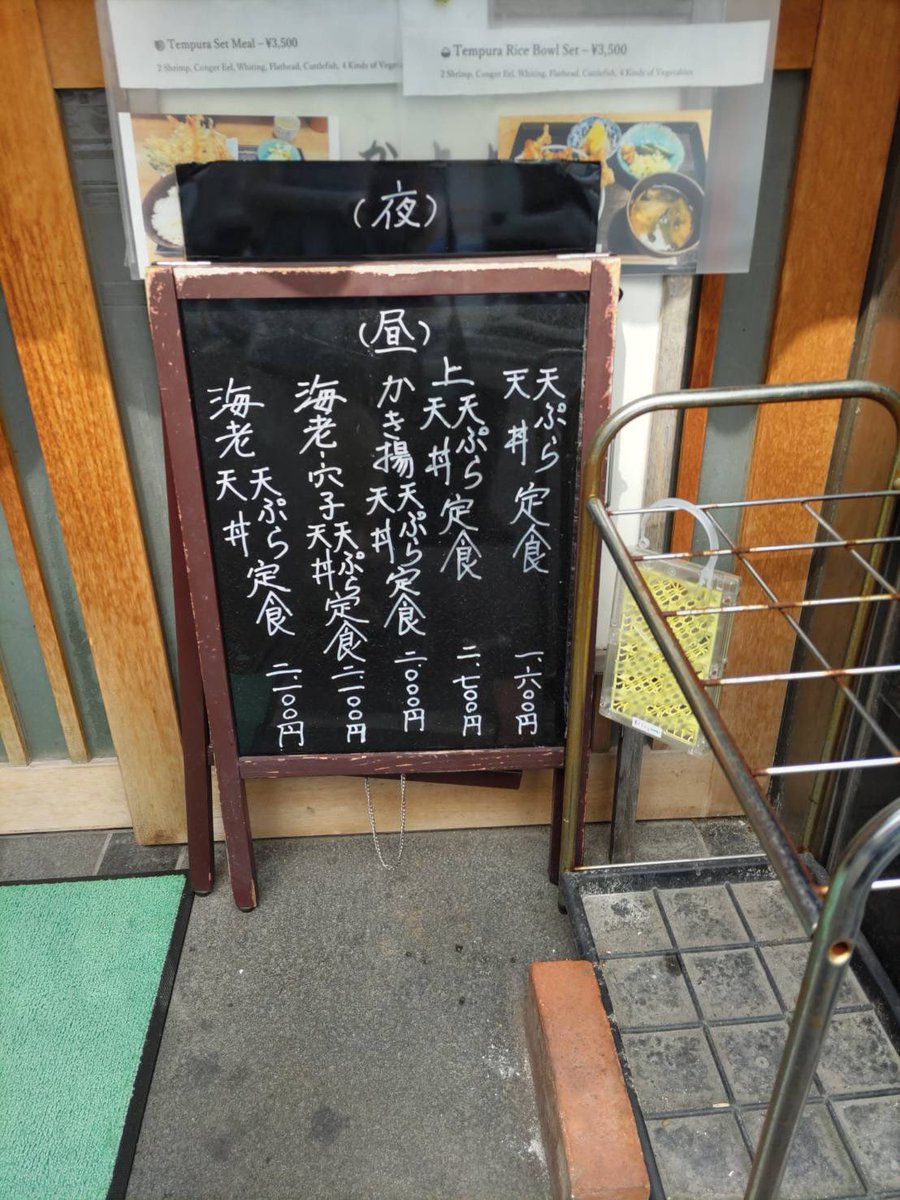 Tempura Set Meal – ¥3,500
2 Shrimp, Conger Eel, Whiting, Flathead, Cuttlefish, 4 Kinds of
Tempura Rice Bowl Set – ¥3,500
2 Shrimp, Conger Eel, Whiting, Flathead, Cuttlefish, 4 Kinds of Vegetables
(夜)
(昼)
天ぷら定食
天丼
一、六〇〇円
上
天ぷら定食
天丼
二、七〇〇円
かき揚
天ぷら定食
天丼
二、〇〇〇円
海老・穴子
天ぷら定食
天丼
二、一〇〇円
海老
天ぷら定食
天丼
二、一〇〇円